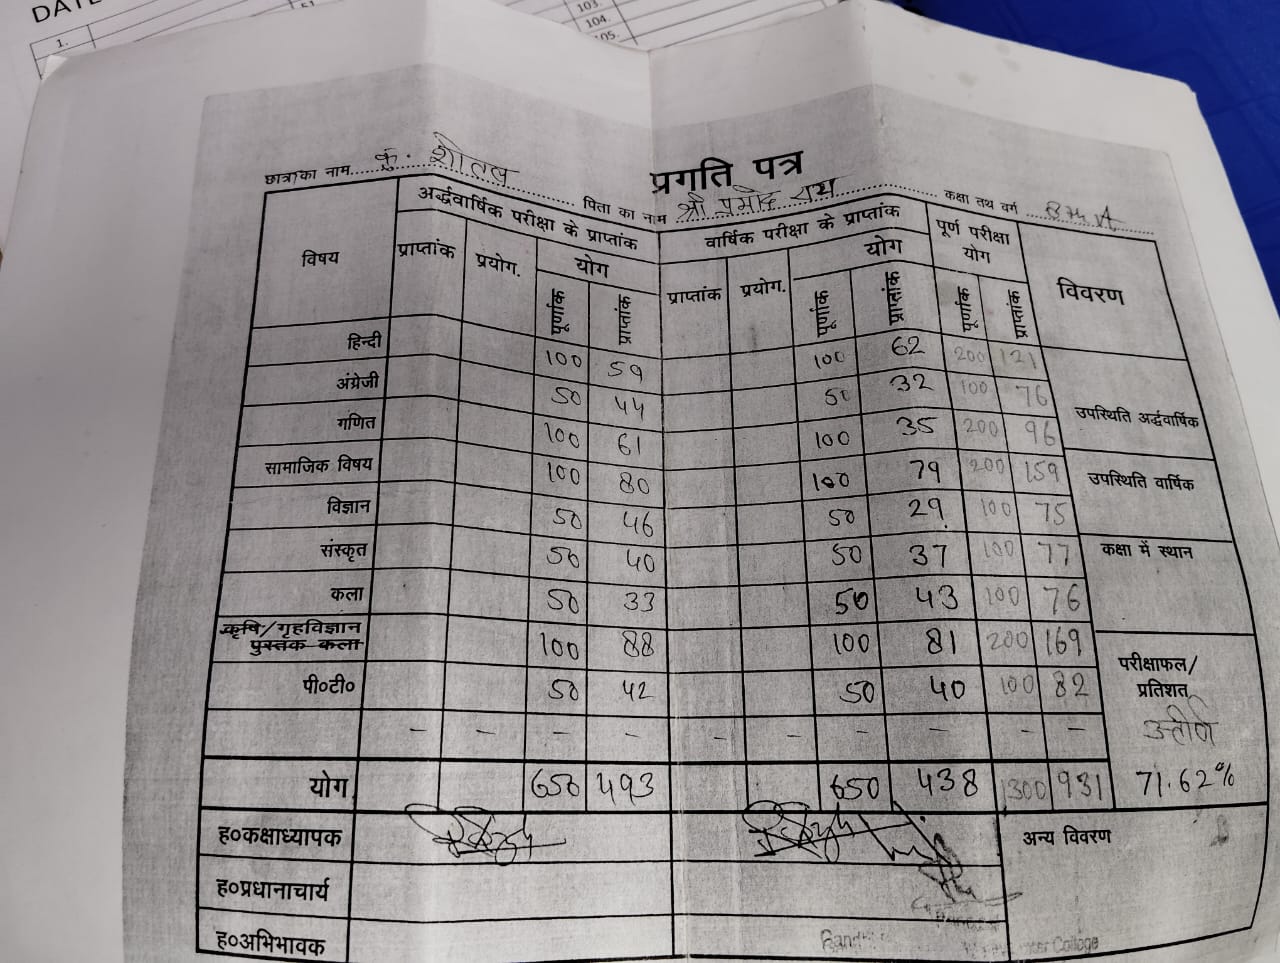 DATE
1.
103.
104.
105.
प्रगति पत्र
छात्राका नाम कु. शीतल पिता का नाम श्री प्रमोद राय कक्षा तथ वर्ग 8th A
विषय अर्द्धवार्षिक परीक्षा के प्राप्तांक वार्षिक परीक्षा के प्राप्तांक पूर्ण परीक्षा योग विवरण
प्राप्तांक प्रयोग. योग प्राप्तांक प्रयोग. योग
पूर्णांक प्राप्तांक पूर्णांक प्राप्तांक पूर्णांक प्राप्तांक
हिन्दी 100 59 100 62 200 121
अंग्रेजी 50 44 50 32 100 76 उपस्थिति अर्द्धवार्षिक
गणित 100 61 100 35 200 96
सामाजिक विषय 100 80 100 79 200 159 उपस्थिति वार्षिक
विज्ञान 50 46 50 29 100 75
संस्कृत 50 40 50 37 100 77 कक्षा में स्थान
कला 50 33 50 43 100 76
कृषि/गृहविज्ञान
पुस्तक कला 100 88 100 81 200 169
पी०टी० 50 42 50 40 100 82 परीक्षाफल/
प्रतिशत
- - - - - - - - - - उत्तीर्ण
योग 650 493 650 438 1300 931 71.62%
ह०कक्षाध्यापक अन्य विवरण
ह०प्रधानाचार्य
ह०अभिभावक
College